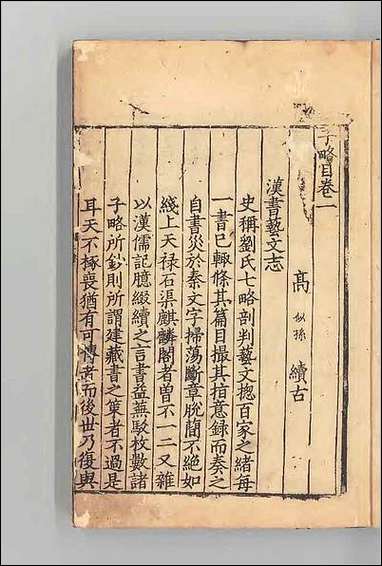 子略目卷一
高 似孫 續古
漢書藝文志
史稱劉氏七略剖判藝文揔百家之緒每
一書已輙條其篇目撮其指意錄而奏之
自書災於秦文字掃蕩斷章脫簡不絕如
綫上天禄石渠麒麟閣者曾不一二又雜
以漢儒記臆綴續之言書益蕪駁枚數諸
子略所鈔則所謂建藏書之策者不過是
耳天不椓喪猶有可傳者而後世乃復與